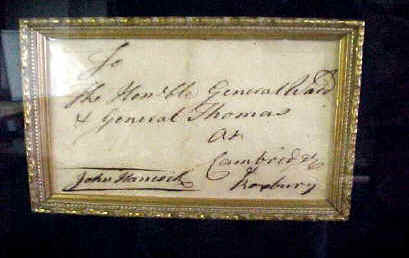 To
the Honble General Ward
& General Thomas
At
Cambridge
Roxbury
John Hancock